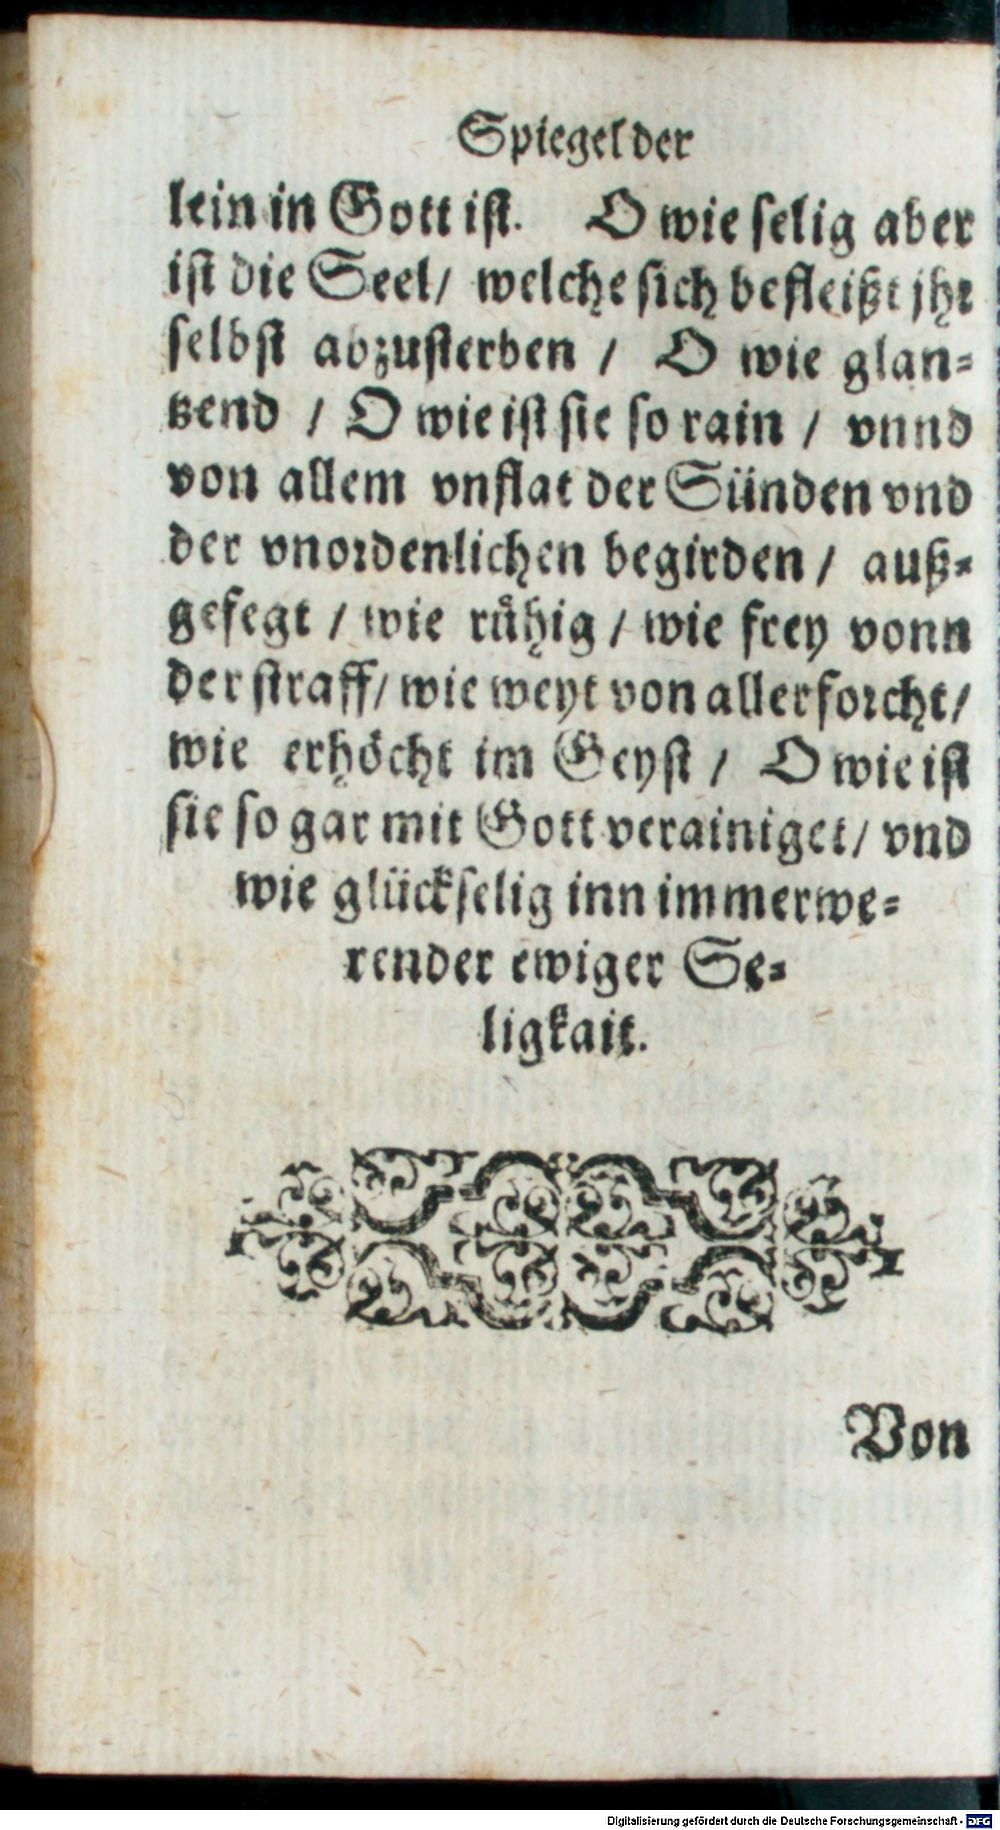 Spiegel der
lein in Gott ist. O wie selig aber
ist die Seel/ welche sich befleißt jhr
selbst abzusterben / O wie glan-
tzend / O wie ist sie so rain / vnnd
von allem vnflat der Sünden vnd
der vnordenlichen begirden / auß-
gefegt / wie rühig / wie frey vonn
der straff/ wie weyt von aller forcht/
wie erhöcht im Geyst / O wie ist
sie so gar mit Gott verainiget/ vnd
wie glückselig inn immerwe-
render ewiger Se-
ligkait.
Von
Digitalisierung gefördert durch die Deutsche Forschungsgemeinschaft - DFG